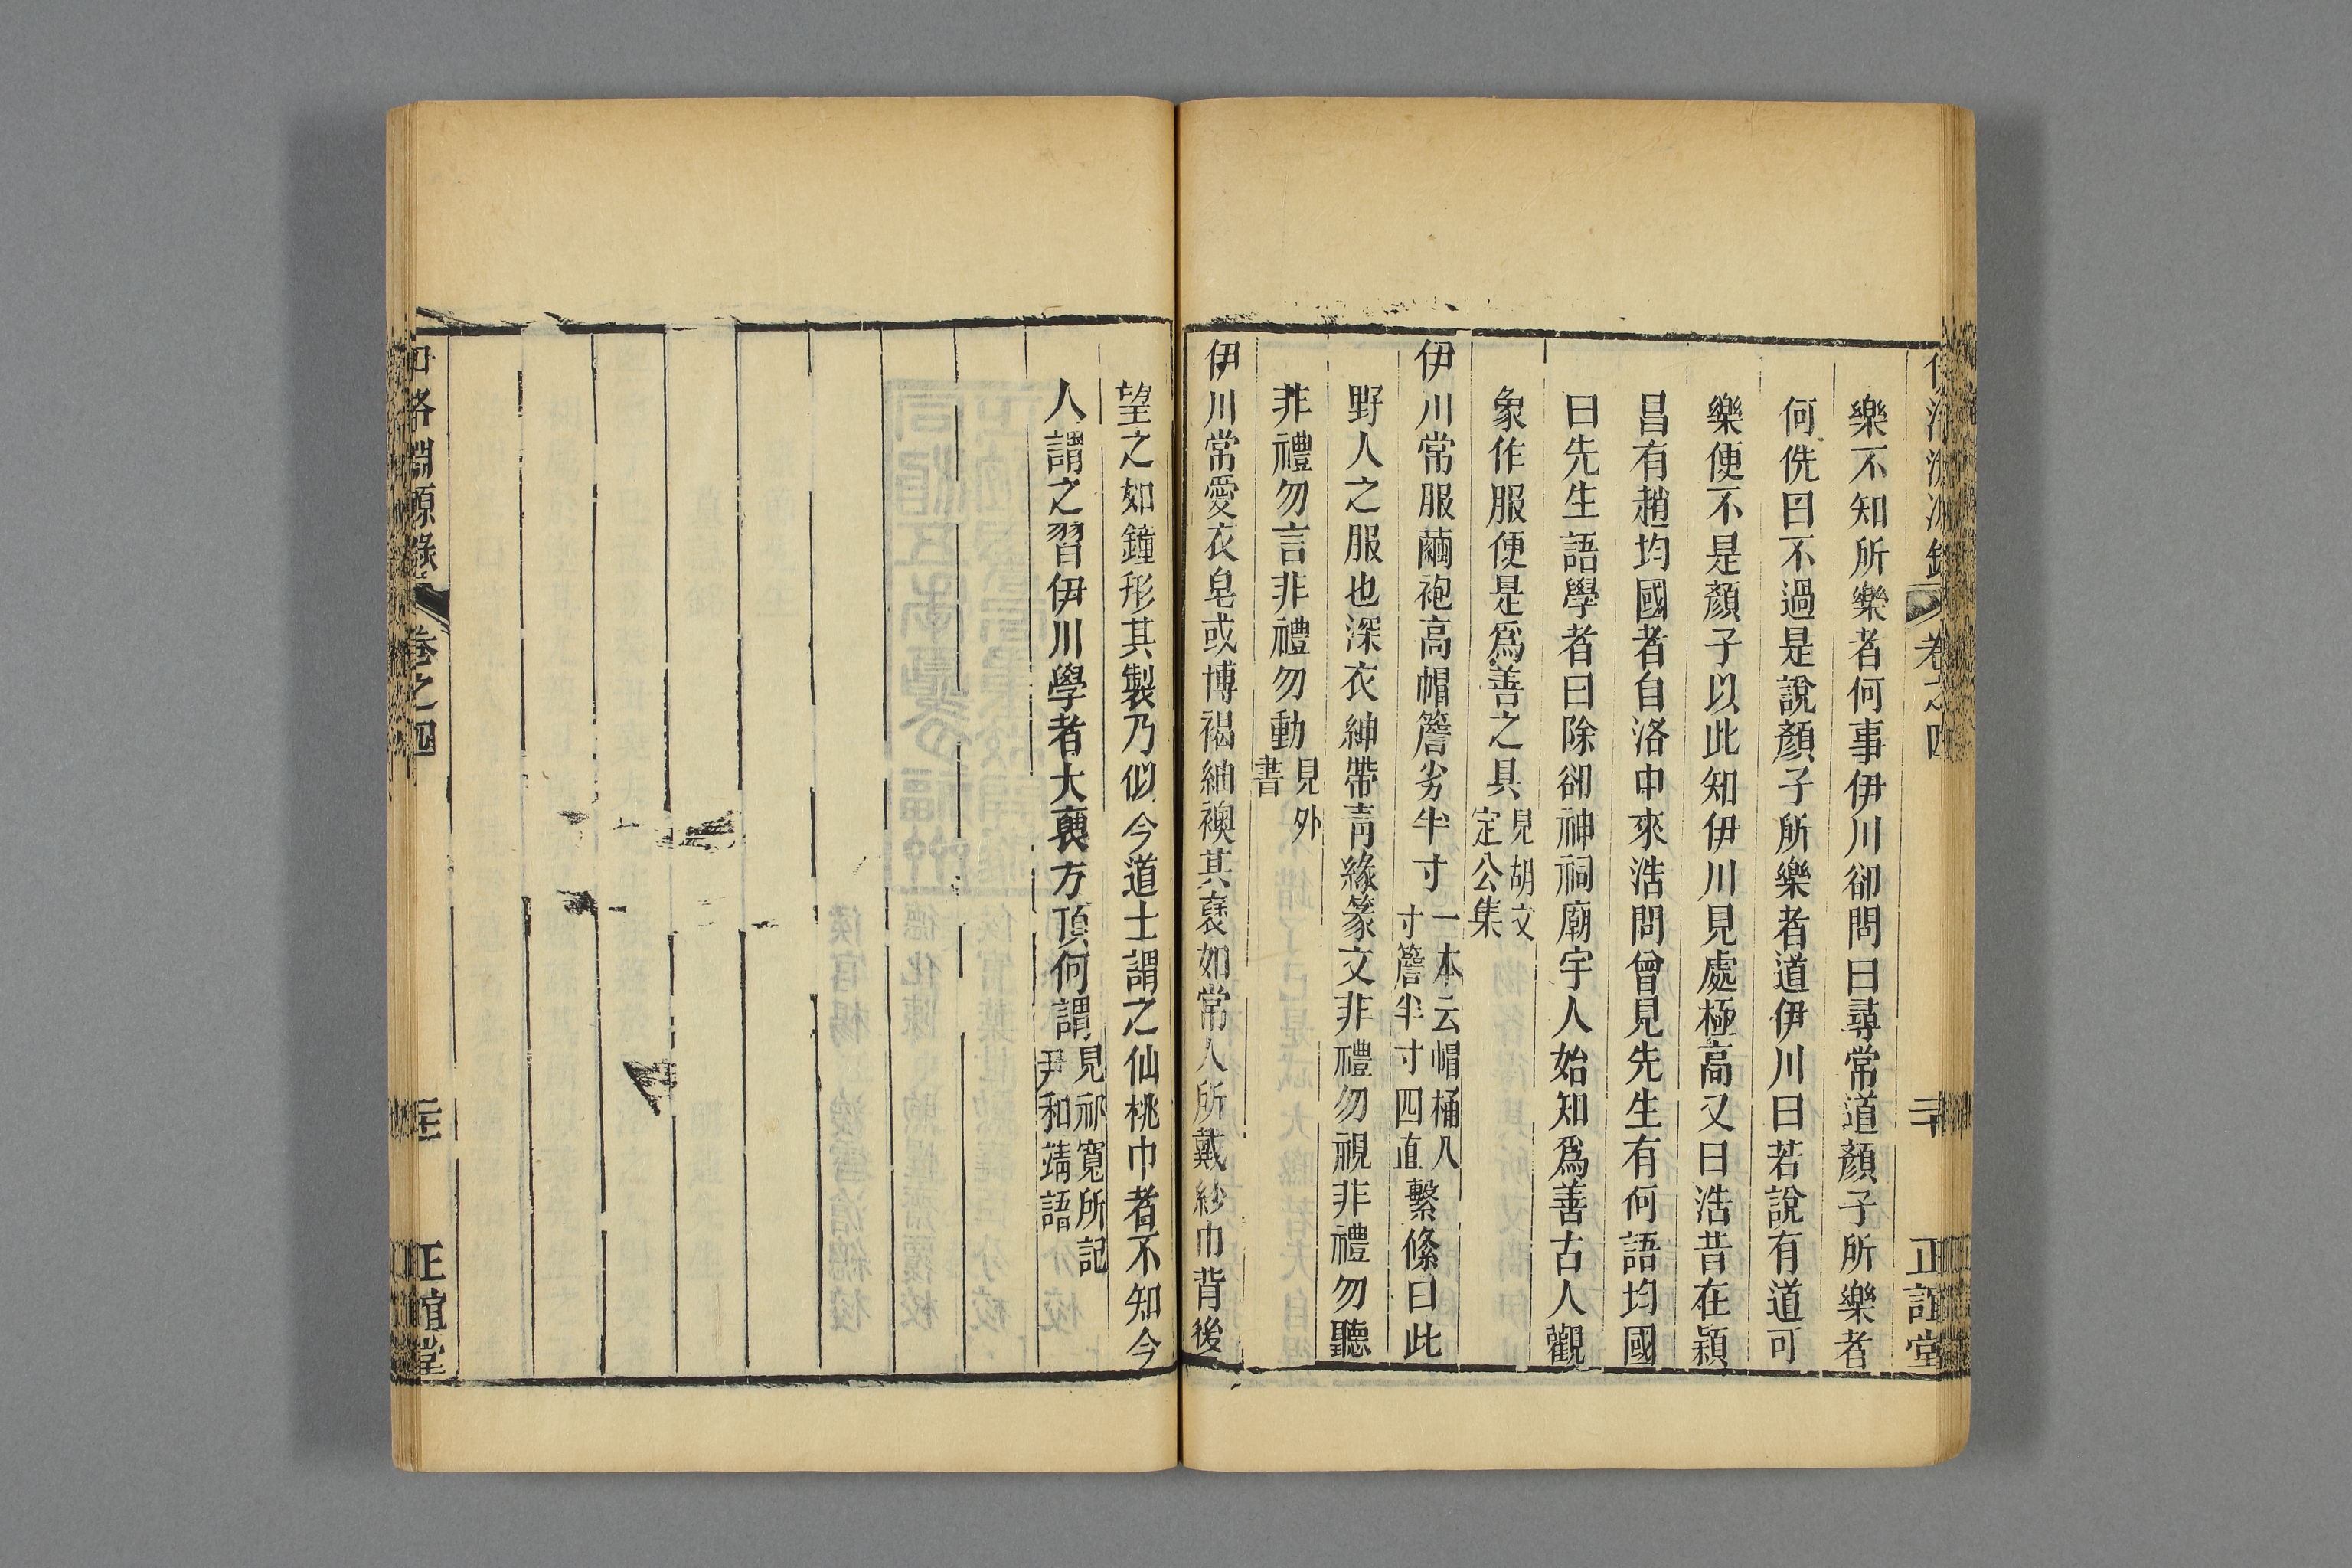 伊洛淵源錄 卷之四 二十 正誼堂
樂不知所樂者何事伊川卻問曰尋常道顏子所樂者
何侁曰不過是說顏子所樂者道伊川曰若說有道可
樂便不是顏子以此知伊川見處極高又曰浩昔在潁
昌有趙均國者自洛中來浩問曾見先生有何語均國
曰先生語學者曰除卻神祠廟宇人始知爲善古人觀
象作服便是爲善之具見胡文
定公集
伊川常服繭袍高帽簷劣半寸一本云帽桶八
寸簷半寸四直繫絛曰此
野人之服也深衣紳帶靑緣篆文非禮勿視非禮勿聽
非禮勿言非禮勿動見外
書
伊川常愛衣皂或博褐紬襖其袞如常人所戴紗巾背後
望之如鐘形其製乃似今道士謂之仙桃巾者不知今
人謂之習伊川學者大袖方頂何謂見祁寬所記
尹和靖語
伊洛淵源錄 卷之四 正誼堂